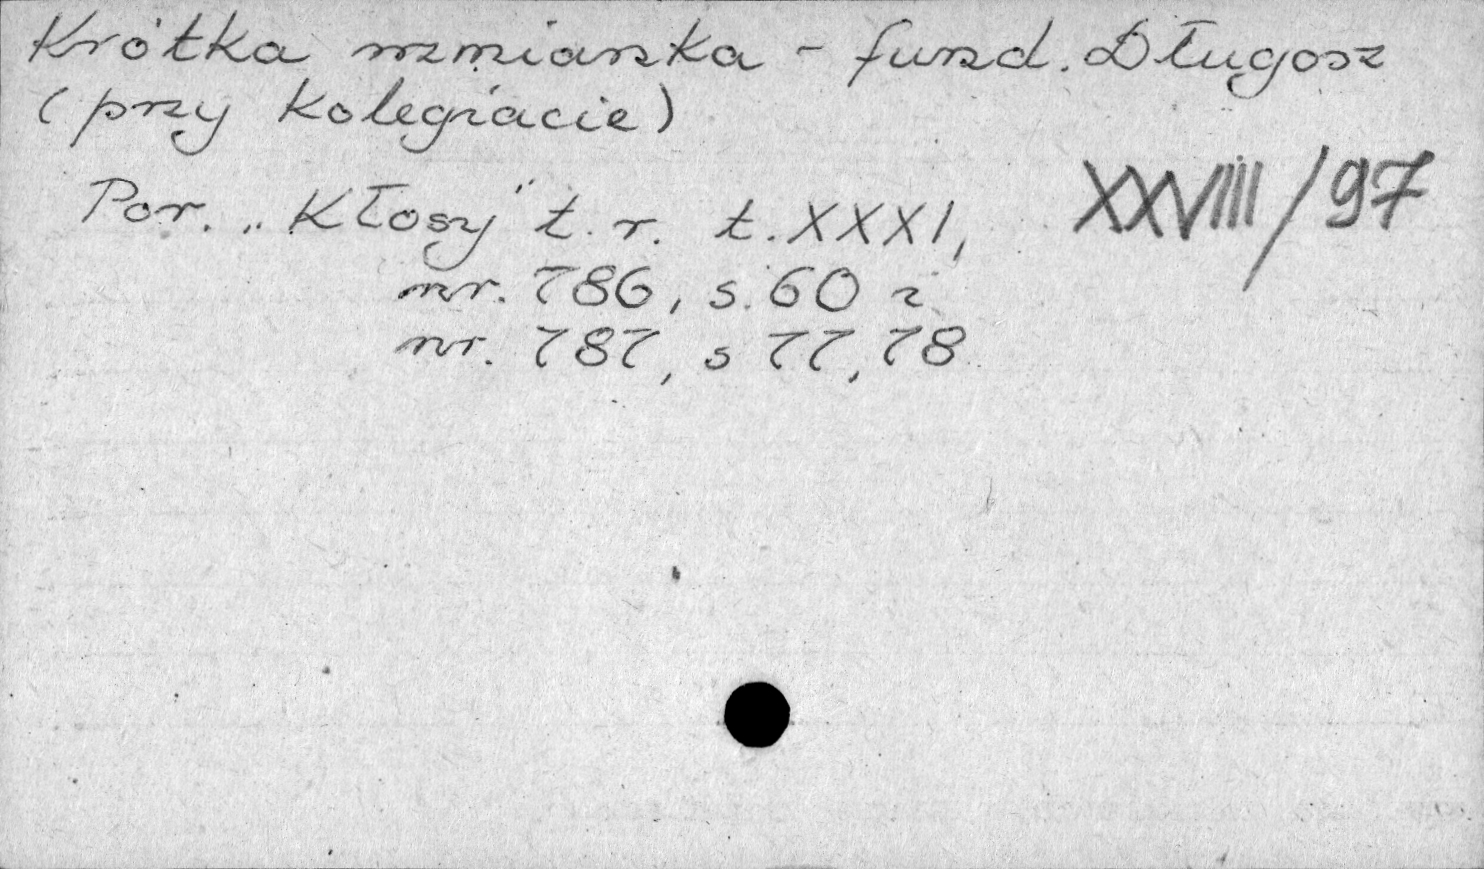 Krótka wzmianka - fund. Długosz
(przy Kolegiacie)
Por. „Kłosy” t. r. t. XXXI,
nr. 786, s. 60 i
nr. 787, s 77, 78
XXVIII/97